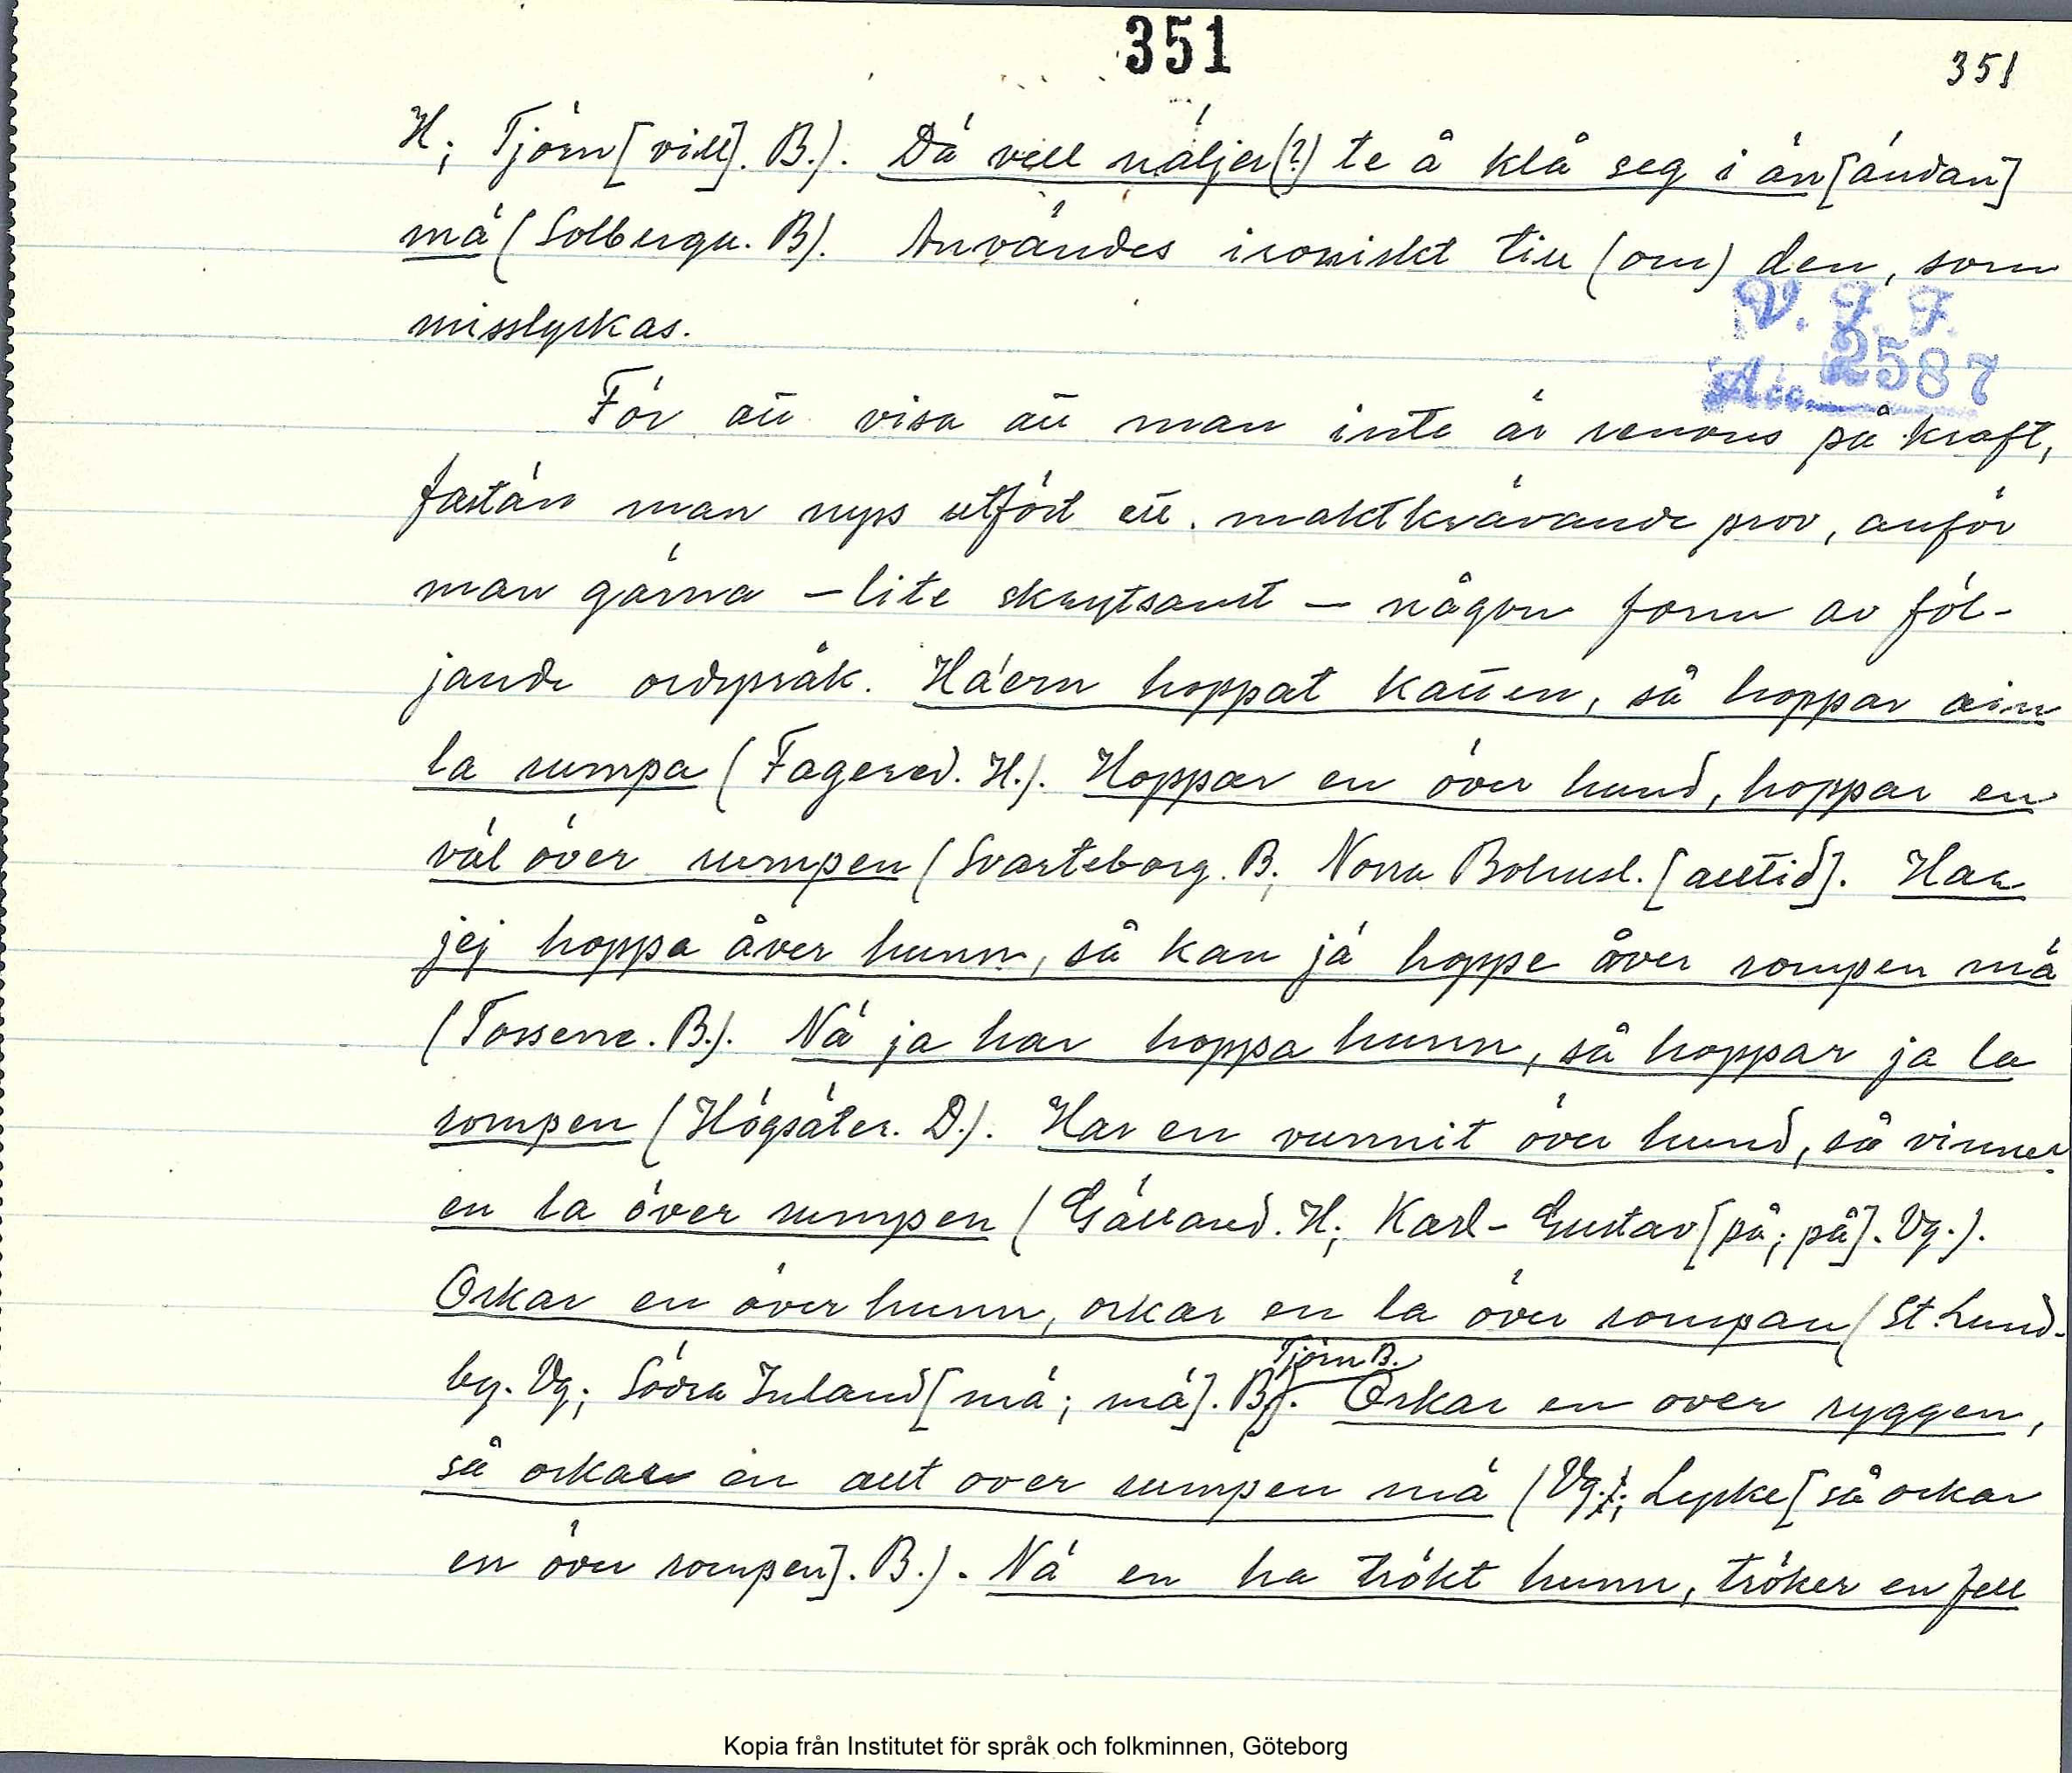 351
351
H; Tjörn [vill]. B.). Dä vell näljer(?) te å klå seg i än [ändan]
mä (Solberga. B). Användes ironiskt till (om) den, som
misslyckas.
V. F. F.
Acc. 2587
För att visa att man inte är renons på kraft,
fastän man nyss utfört ett maktkrävande prov, anför
man gärna – lite skrytsamt – någon form av föl-
jande ordspråk. Hä'ern hoppat katten, så hoppar ain
la rumpa (Fagered. H.). Hoppar en över hund, hoppar en
väl över rumpen (Svarteborg. B; Norra Bohusl. [alltid]. Haa
jej hoppa åver hunn, så kan jä hoppe åver rompen mä
(Tossene. B.). Nä ja har hoppa hunn, så hoppar ja la
rompen (Högsäter. D.). Har en vunnit över hund, så vinner
en la över rumpen (Gällared. H; Karl-Gustav [på; på]. Vg.).
Orkar en över hunn, orkar en la över rompan (St. Lund-
by. Vg; Södra Inland [mä; mä]. B). Tjörn B. Orkar en over ryggen,
så orkar en allt over rumpen mä (Vg.; Lyske [så orkar
en över rompen]. B.). Nä en ha trökt hunn, tröker en fell
Kopia från Institutet för språk och folkminnen, Göteborg